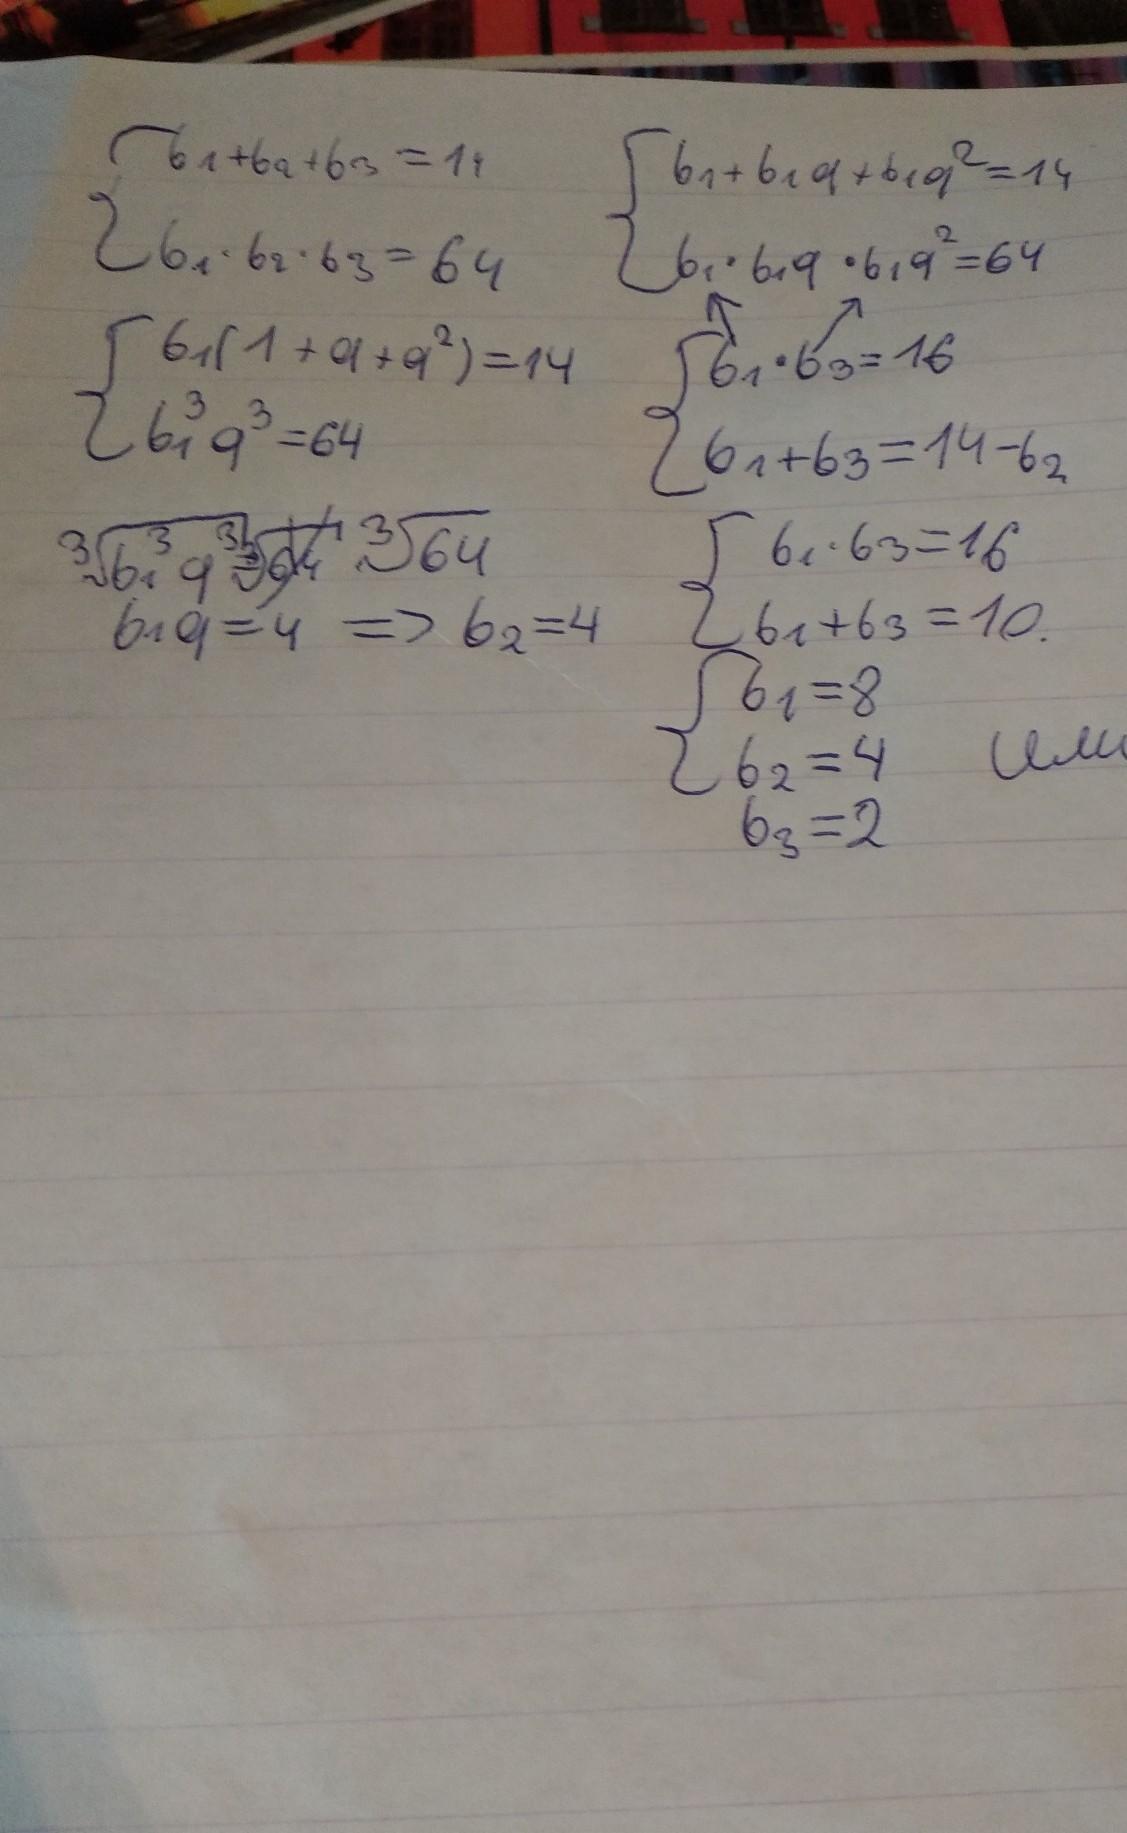 b1+b2+b3=14
b1·b2·b3=64
b1+b1q+b1q²=14
b1·b1q·b1q²=64
b1(1+q+q²)=14
b1³q³=64
b1·b3=16
b1+b3=14-b2
∛b1³q³=∛64
b1q=4 => b2=4
b1·b3=16
b1+b3=10.
b1=8
b2=4 или
b3=2